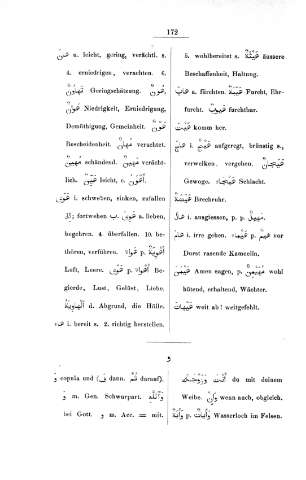 172
هان u. leicht, gering, verächtl. s.
4. erniedrigen, verachten. 6.
Geringschätzung. هَوْن
Niedrigkeit, Erniedrigung,
Demüthigung, Gemeinheit. هَوْن
Bescheidenheit. مُهَان verachtet.
مُهِين schändend. مَهِين verächt-
lich. أَهْوَن leicht, c.
هوى i. schweben, sinken, zufallen
fortwehen هوى a. lieben,
begehren. 4. überfallen. 10. be-
thören, verführen. هواء p. أهوية
Luft, Leere. هوى p. أهواء Be-
gierde, Lust, Gelüst, Liebe.
الهاوية d. Abgrund, die Hölle.
هاء i. bereit s. 2. richtig herstellen.
5. wohlbereitet s. هيئة äussere
Beschaffenheit, Haltung.
هاب a. fürchten. هيبة Furcht, Ehr-
furcht. مهيب furchtbar.
هيت komm her.
هاج i. aufgeregt, brünstig s.,
verwelken, vergehen. هيجان
Gewoge. هيجاء Schlacht.
هيضة Brechruhr.
هال i. ausgiessen, p. p. مهيل
هام i. irre gehen. هيماء p. هيم vor
Durst rasende Kameelin.
هيمن Amen sagen, مهيمن wohl
hütend, erhaltend, Wächter.
هيهات weit ab! weitgefehlt.
و
و copula und (ف dann. ثم darauf).
و m. Gen. Schwurpart. والله
bei Gott. و m. Acc. = mit.
أنت وزوجتك du mit deinem
Weibe. وإن wenn auch, obgleich.
وأبة p. وأبات Wasserloch im Felsen.